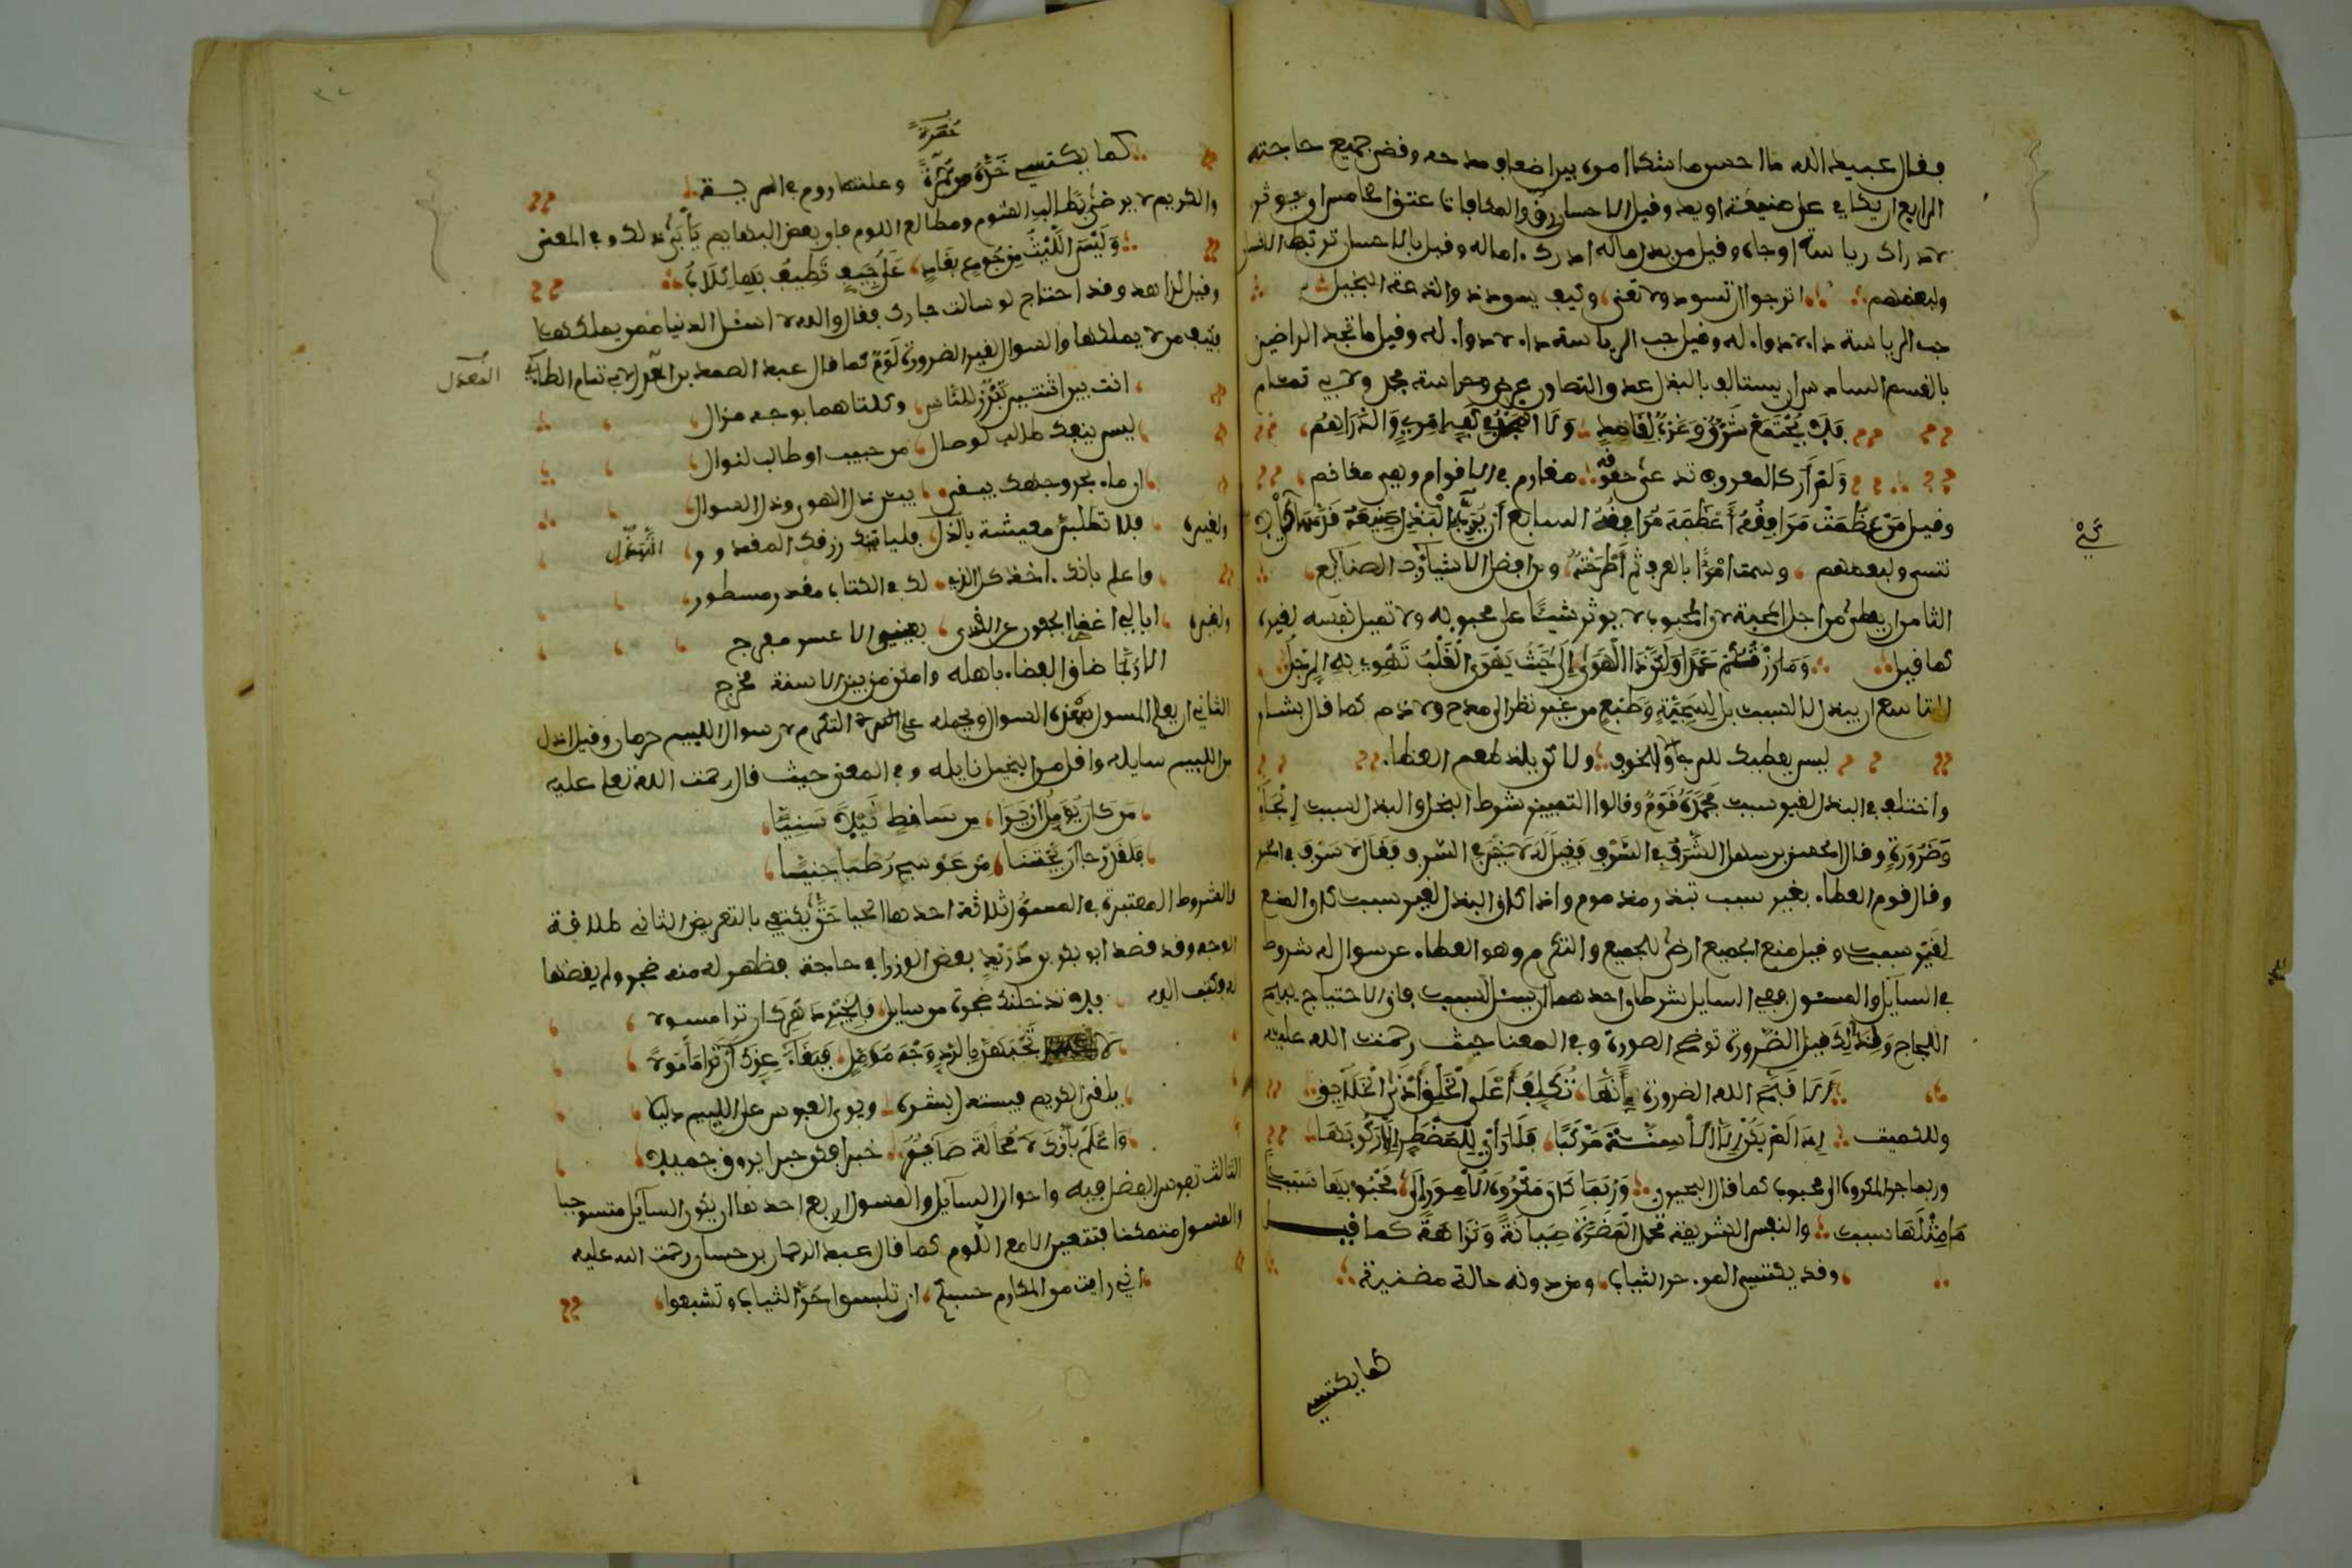 فقال عبيد الله ما احسن ما شكا امره بين اضعافه مدحه وقضى جميع حاجته
الرابع ان يكافي على صنيعة او يد وقيل الاحسان رق والمكافات عتق الخامس ان يوثر
لادراك رياسة او جاه وقيل من بذل ماله ادرك اماله وقيل بالاحسان ترتبط
ولبعضهم اترجوا ان تسود ولا تعنى وكيف يسود ذو الدعة البخيل
حب الرياسة داء لا دواء له وقيل حب الرياسة داء لا دواء له وقيل ما تجد الراضين
بالقسم السادس ان يستالف بالبذل عدو والتصاون عرض وحراسة مجد ولابي تمام
فلم يجتمع شرق وغرب لقاصد ولا المجد في كف امرئ والدراهم
ولم ار كالمعروف تدعى حقوقه مغارم في الاقوام وهي مغانم
وقيل من عظمت مرافقه اعظمه مرافقه السابع ان يربي البذل صنيعة قدمها كي لا
تنسى ولبعضهم وسمت امرءا بالعرف ثم اطرحته ومن افضل الاشياء رب الصنائع
الثامن ان يعطى من اجل المحبة لان المحبوب لا يوثر شيئا على محبوبه ولا تميل نفسه لغيره
كما قيل وما زرتكم عمدا ولكن ذا الهوى الى حيث يهوى القلب تهوي به الرجل
التاسع ان يبذل لا لسبب بل لسجية وطبع من غير نظر الى مدح ولا ذم كما قال بشار
ليس يعطيك للرجاء والخوف ولاكن يلذ طعم العطاء
واختلف في البذل لغير سبب فحمده قوم وقالوا التمييز شرط البخل والبذل لسبب الجاء
وضرورة وقال الحسن بن سهل الشرف في السرف فقيل له لا خير في السرف فقال لا سرف في الخير
وقال قوم العطاء بغير سبب تبذر مذموم واذا كان البذل لغير سبب كان المنع
لغير سبب وقيل منع الجميع ارضى للجميع والتكرم وهو العطاء عن سوال له شروط
في السايل والمسئول ففي السايل شرطان احدهما ان يسئل لسبب فان الاحتياج
اللجاج ولذالك قيل الضرورة توضح الصورة وفي المعنا حيث رحمت الله عليه
الا قبح الله الضرورة انها تكلف اعلى الخلق ادنى الخلايق
وللكميت اذا لم يكن الا الاسنة مركبا فلا راي للمضطر الا ركوبها
وربما جر المكروه الى محبوب كما قال البحيري وربما كان مكروه الامور الى محبوبها سببا
ما مثلها سبب والنفس الشريفة تحمل المضرة صيانة ونزاهة كما قيل
وقد يكتسي المرء حر الثياب ومن دونه حالة مضنية
كما يكتسي
كي
كما يكتسي خده حمرة وعلتها روم في الرية
حمرة
والكريم لا يرضى بطالب الشوم ومطالع اللوم فان بعض البهايم يابى ذلك وفي المعنى
وليس الليث من جوع بغاد على جيف تطيف بها كلاب
وقيل لزاهد وقد احتاج لو سالت جارك فقال والله لا اسئل الدنيا ممن يملكها
فكيف من لا يملكها والسوال لغير الضرورة لوم كما قال عبد الصمد بن المعذل لابي تمام الطائي
المعذل
انت بين اثنتين تبرز للناس وكلتاهما بوجه مذال
ليس ينفك طالبا لوصال من حبيب او طالبا لنوال
اي ماء بحر وجهك يبقى بين ذل الهوى وذل السوال
ولغيره فلا تطلبن معيشة بالذل فلياتينك رزقك المقدور
التذلل
واعلم بانك اخذ كل الذي لك في الكتاب مقدر مسطور
ولغيره ابا لي اغضا الجفون على القذى يقيني الا عسر مفرج
الا ربما ضاق الفضاء باهله وامكن من بين الاسنة مخرج
الثاني ان يعلم المسول السوال ويحمله على التكرم لان سوال اللئيم حرمان وقيل اذل
من اللئيم سايله واقل من البخيل نايله وفي المعنى حيث قال رحمت الله تعلى عليه
من كان يومل ان يرا من ساقط نيلا سنيا
فلقد رجا ان يجتنا من عوسج رطبا جنيا
والشروط المعتبرة في المسؤل ثلاثة احدها الحيا حتى يكتفي بالتعريض الثاني طلاقة
الوجه وقد قصد ابو بكر بن دريد بعض الوزرا في حاجة فظهر له منه ضجر ولم يقضها
له وكتب اليه فلا تدخلنك ضجرة من سايل فلخير دهرك ان ترا مسولا
لا تجبهن بالرد وجه مومل فبقاء عزك ان ترا مامولا
يلقى الكريم فيستدل ببشره ويرى العبوس على اللئيم دليلا
واعلم بانك لا محالة صاير خبرا فكن خبرا يروق جميلا
الثالث تفرس الفضل فيه واحوال السايل والمسول اربع احدها ان يكون السايل مستوجبا
والمسول متمكنا فتتعين لامع اللوم كما قال عبد الرحمان بن حسان رحمت الله عليه
اني رايت من المكارم حسبكم ان تلبسوا حر الثياب وتشبعوا